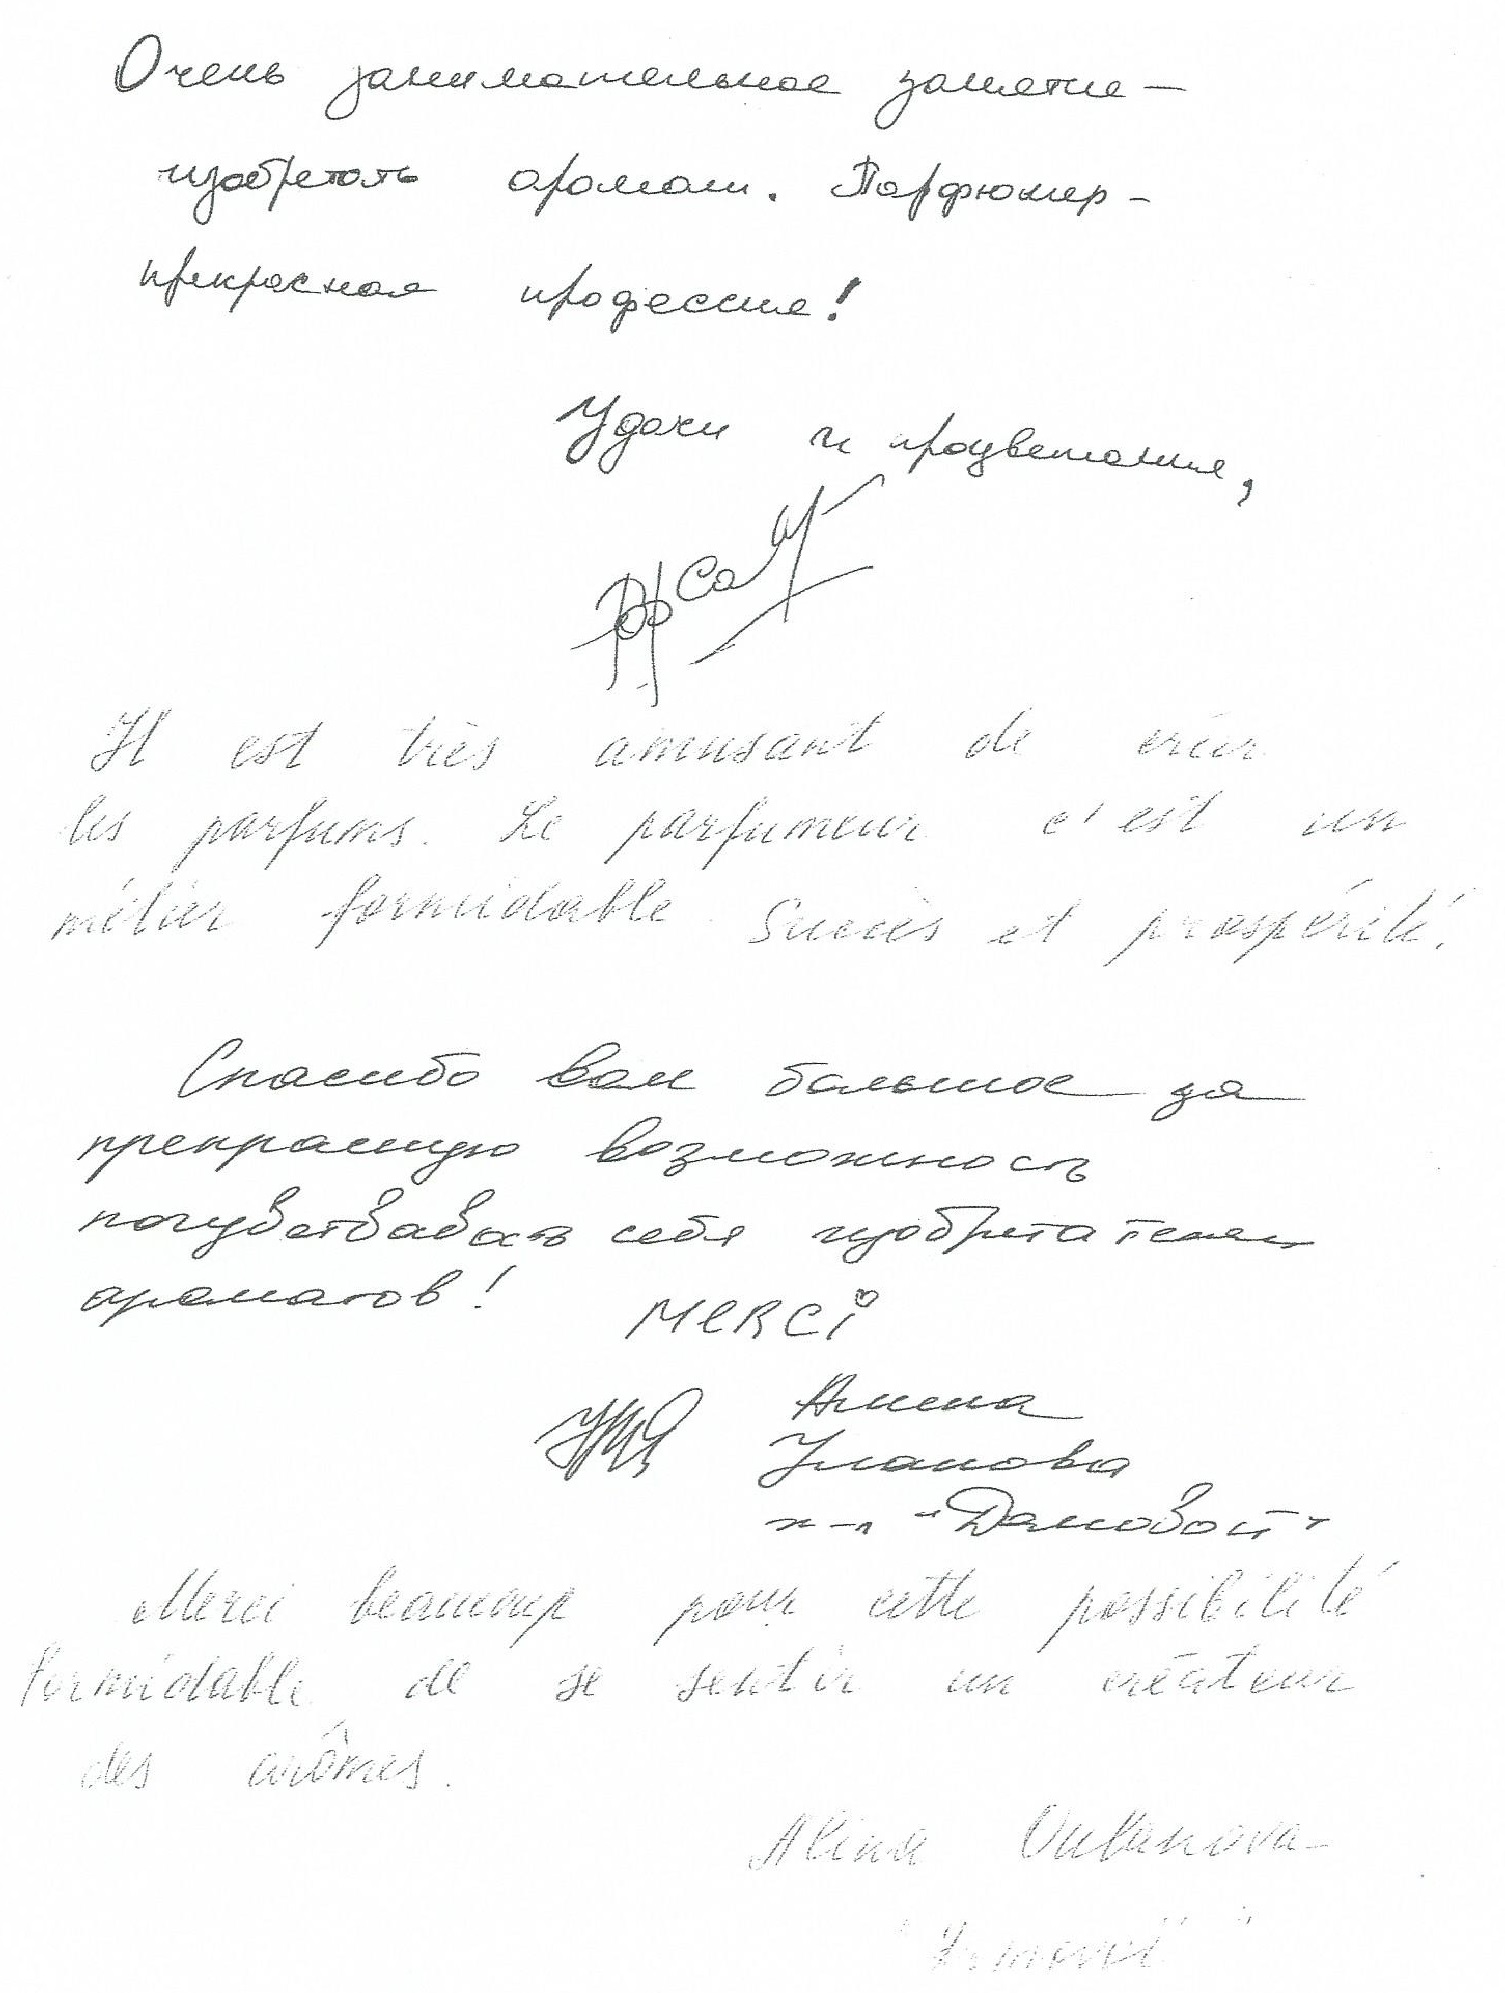 Очень занимательное занятие —
изобретать аромат. Парфюмер -
прекрасная профессия!
Удачи и процветания,
Il est très amusant de créer
les parfums. Le parfumeur c'est un
métier formidable. Succès et prospérité.
Спасибо вам большое за
прекрасную возможность
почувствовать себя изобретателем
ароматов!
MERCi
Алина
Уланова
ж-л "Домовой"
Merci beaucoup pour cette possibilité
formidable de se sentir un créateur
des arômes.
Alina Oulanova